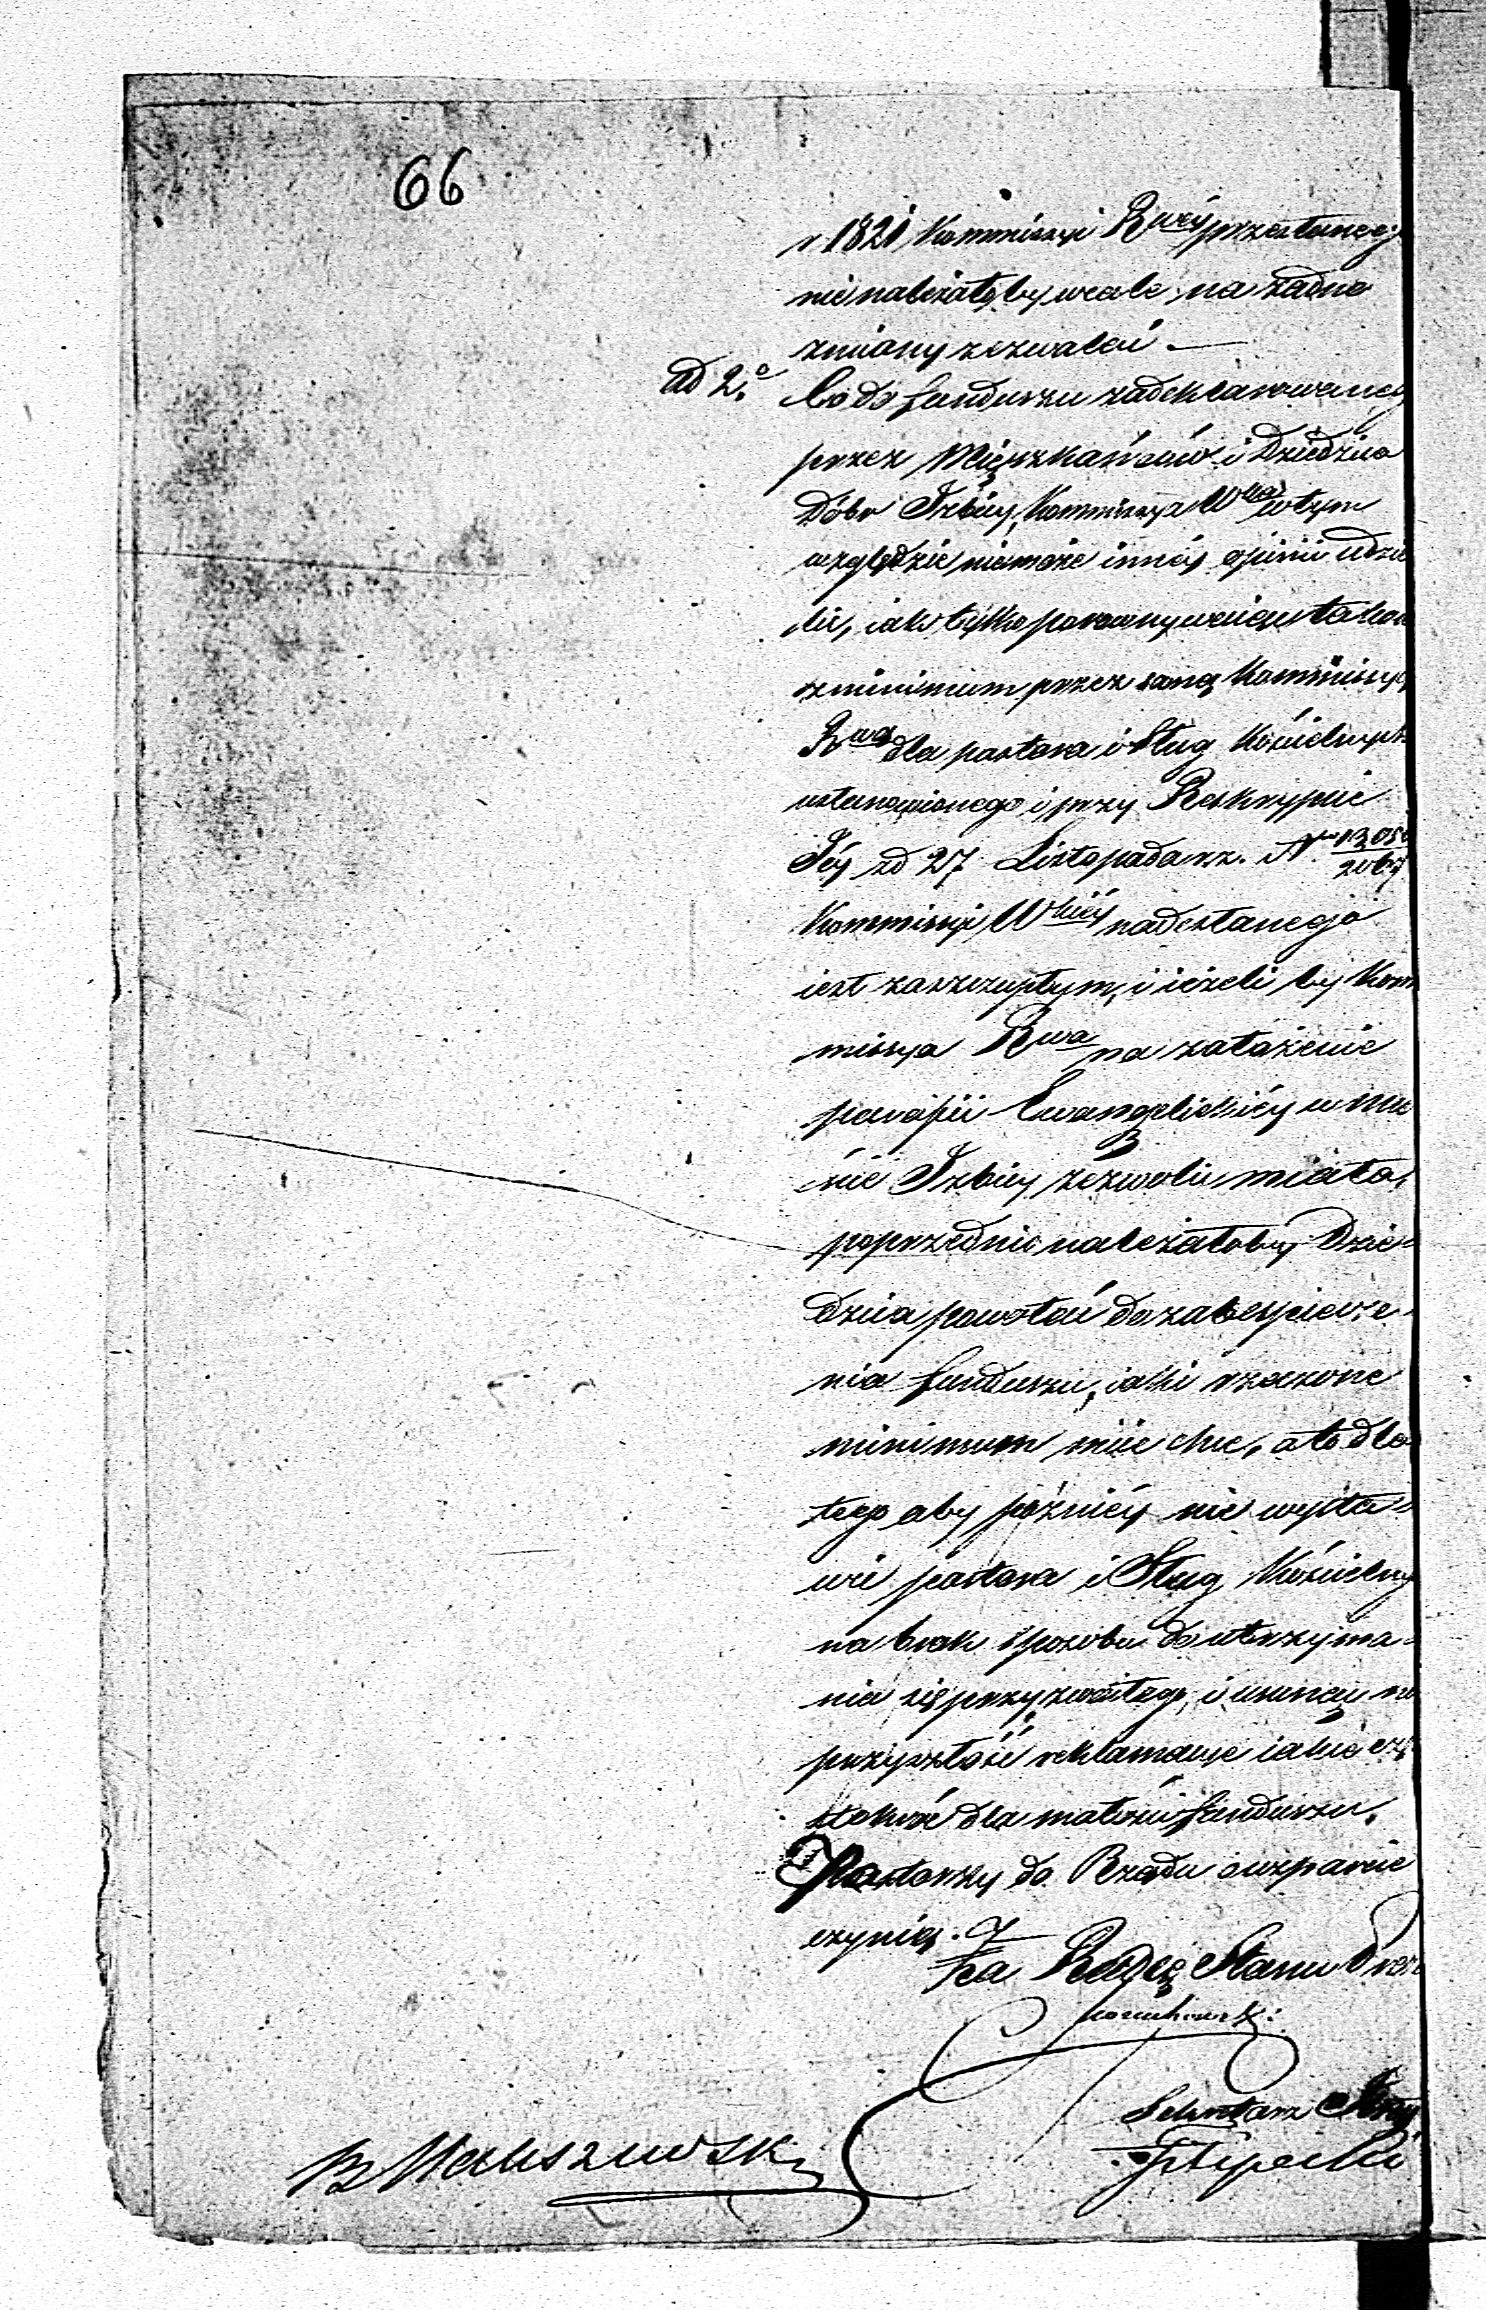 66
r 1821 Kommissyi Rwéy przesłaneg
nie należałoby wcale na żadne
zmiany zezwalać. —
ad 2.o Co do funduszu zadeklarowaneg
przez Mieszkańców i Dziedzica
Dóbr Izbicy, Kommissya Wka w tym
względzie nie może innéy opinii udzie
lić, iak tylko porównywaiąc takow
z minimum przez samą Kommissyą
Rwą dla pastora i sług Kościelnych
ustanowionego i przy Reskrypcie
Téy zd 27 Listopada rz. N.
Kommissyi Wkiéy nadesłanego
iest zaszczupłym, i ieżeli by Kom
missya Rwa na założenie
parafii Ewangelickiéy w mie
ście Izbicy zezwolić miała,
poprzednio należałoby Dzie=
dzica powołać do zabespiecze=
nia funduszu, iaki rzeczone
minimum mieć chce, a to dla
tego aby późniéy nie wysta=
wić pastora i Sług Kościelny
na brak sposobu do utrzyma=
nia się przyzwoitego, i usunąć na
przyszłość reklamacye iakie czę
stokroć dla małości funduszu,
Pastorzy do Rządu o wsparcie
czynią.
za Radcę Stanu Prez
Sekretarz
Filipecki